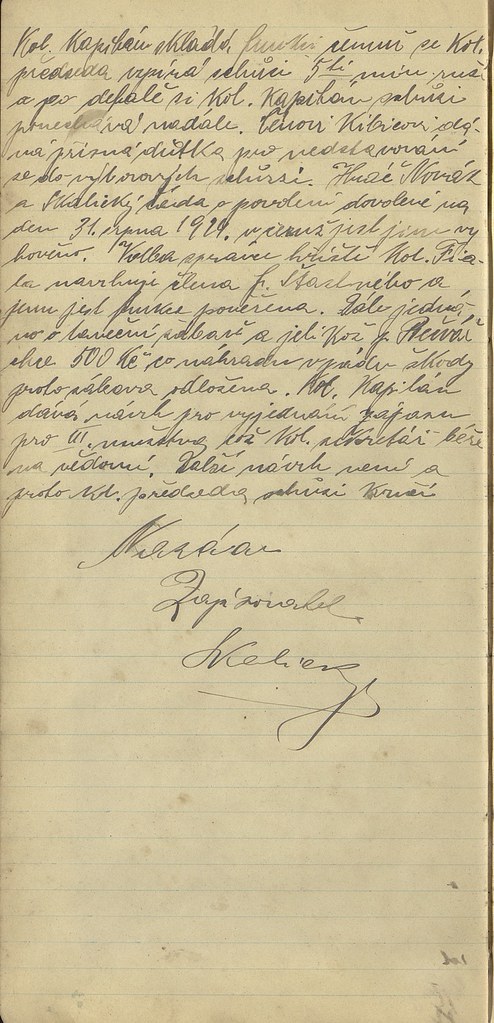 Kol. Kapitán skládá funkci čemuž se Kol.
předseda vzpírá schůzi 5ti min. ruší
a po debatě si Kol. Kapitán schůzi
ponechává nadále. Členovi Kibicovi dá-
na přísná důtka pro nedostavování
se do výborových schůzí. Hráč Novák
a Skalický žádá o povolení dovolené na
den 31. srpna 1924. v jemuž jest jim vy
hověno. Volba správce hřiště Kol. Fia-
la navrhuje člena fr. Šťastného a
jemu jest funkce pověřena. Dále jedná-
no o taneční zábavě a jelikož p.
chce 500 Kč co náhradu výpadu škody
proto zábava odložena. Kol. Kapitán
dává návrh pro vyjednání zápasu
pro III. mužstva což Kol. sekretář béře
na vědomí. Další návrh není a
proto Kol. předseda schůzi končí
Nazdar
Zapisovatel
Skalický